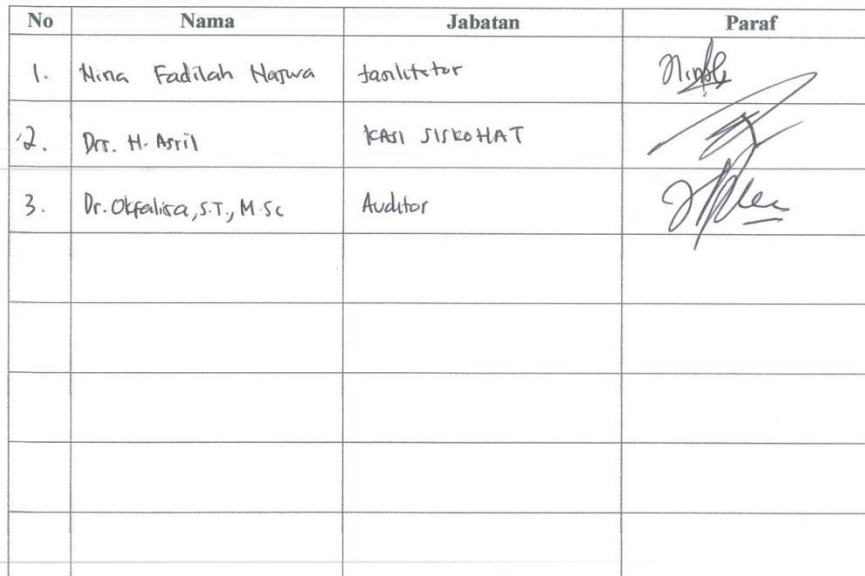 No Nama Jabatan Paraf
1. Nina Fadilah Najwa fasilitator
2. Drs. H. Asril KASI SISKOHAT
3. Dr. Okfalisa, S.T., M.Sc Auditor